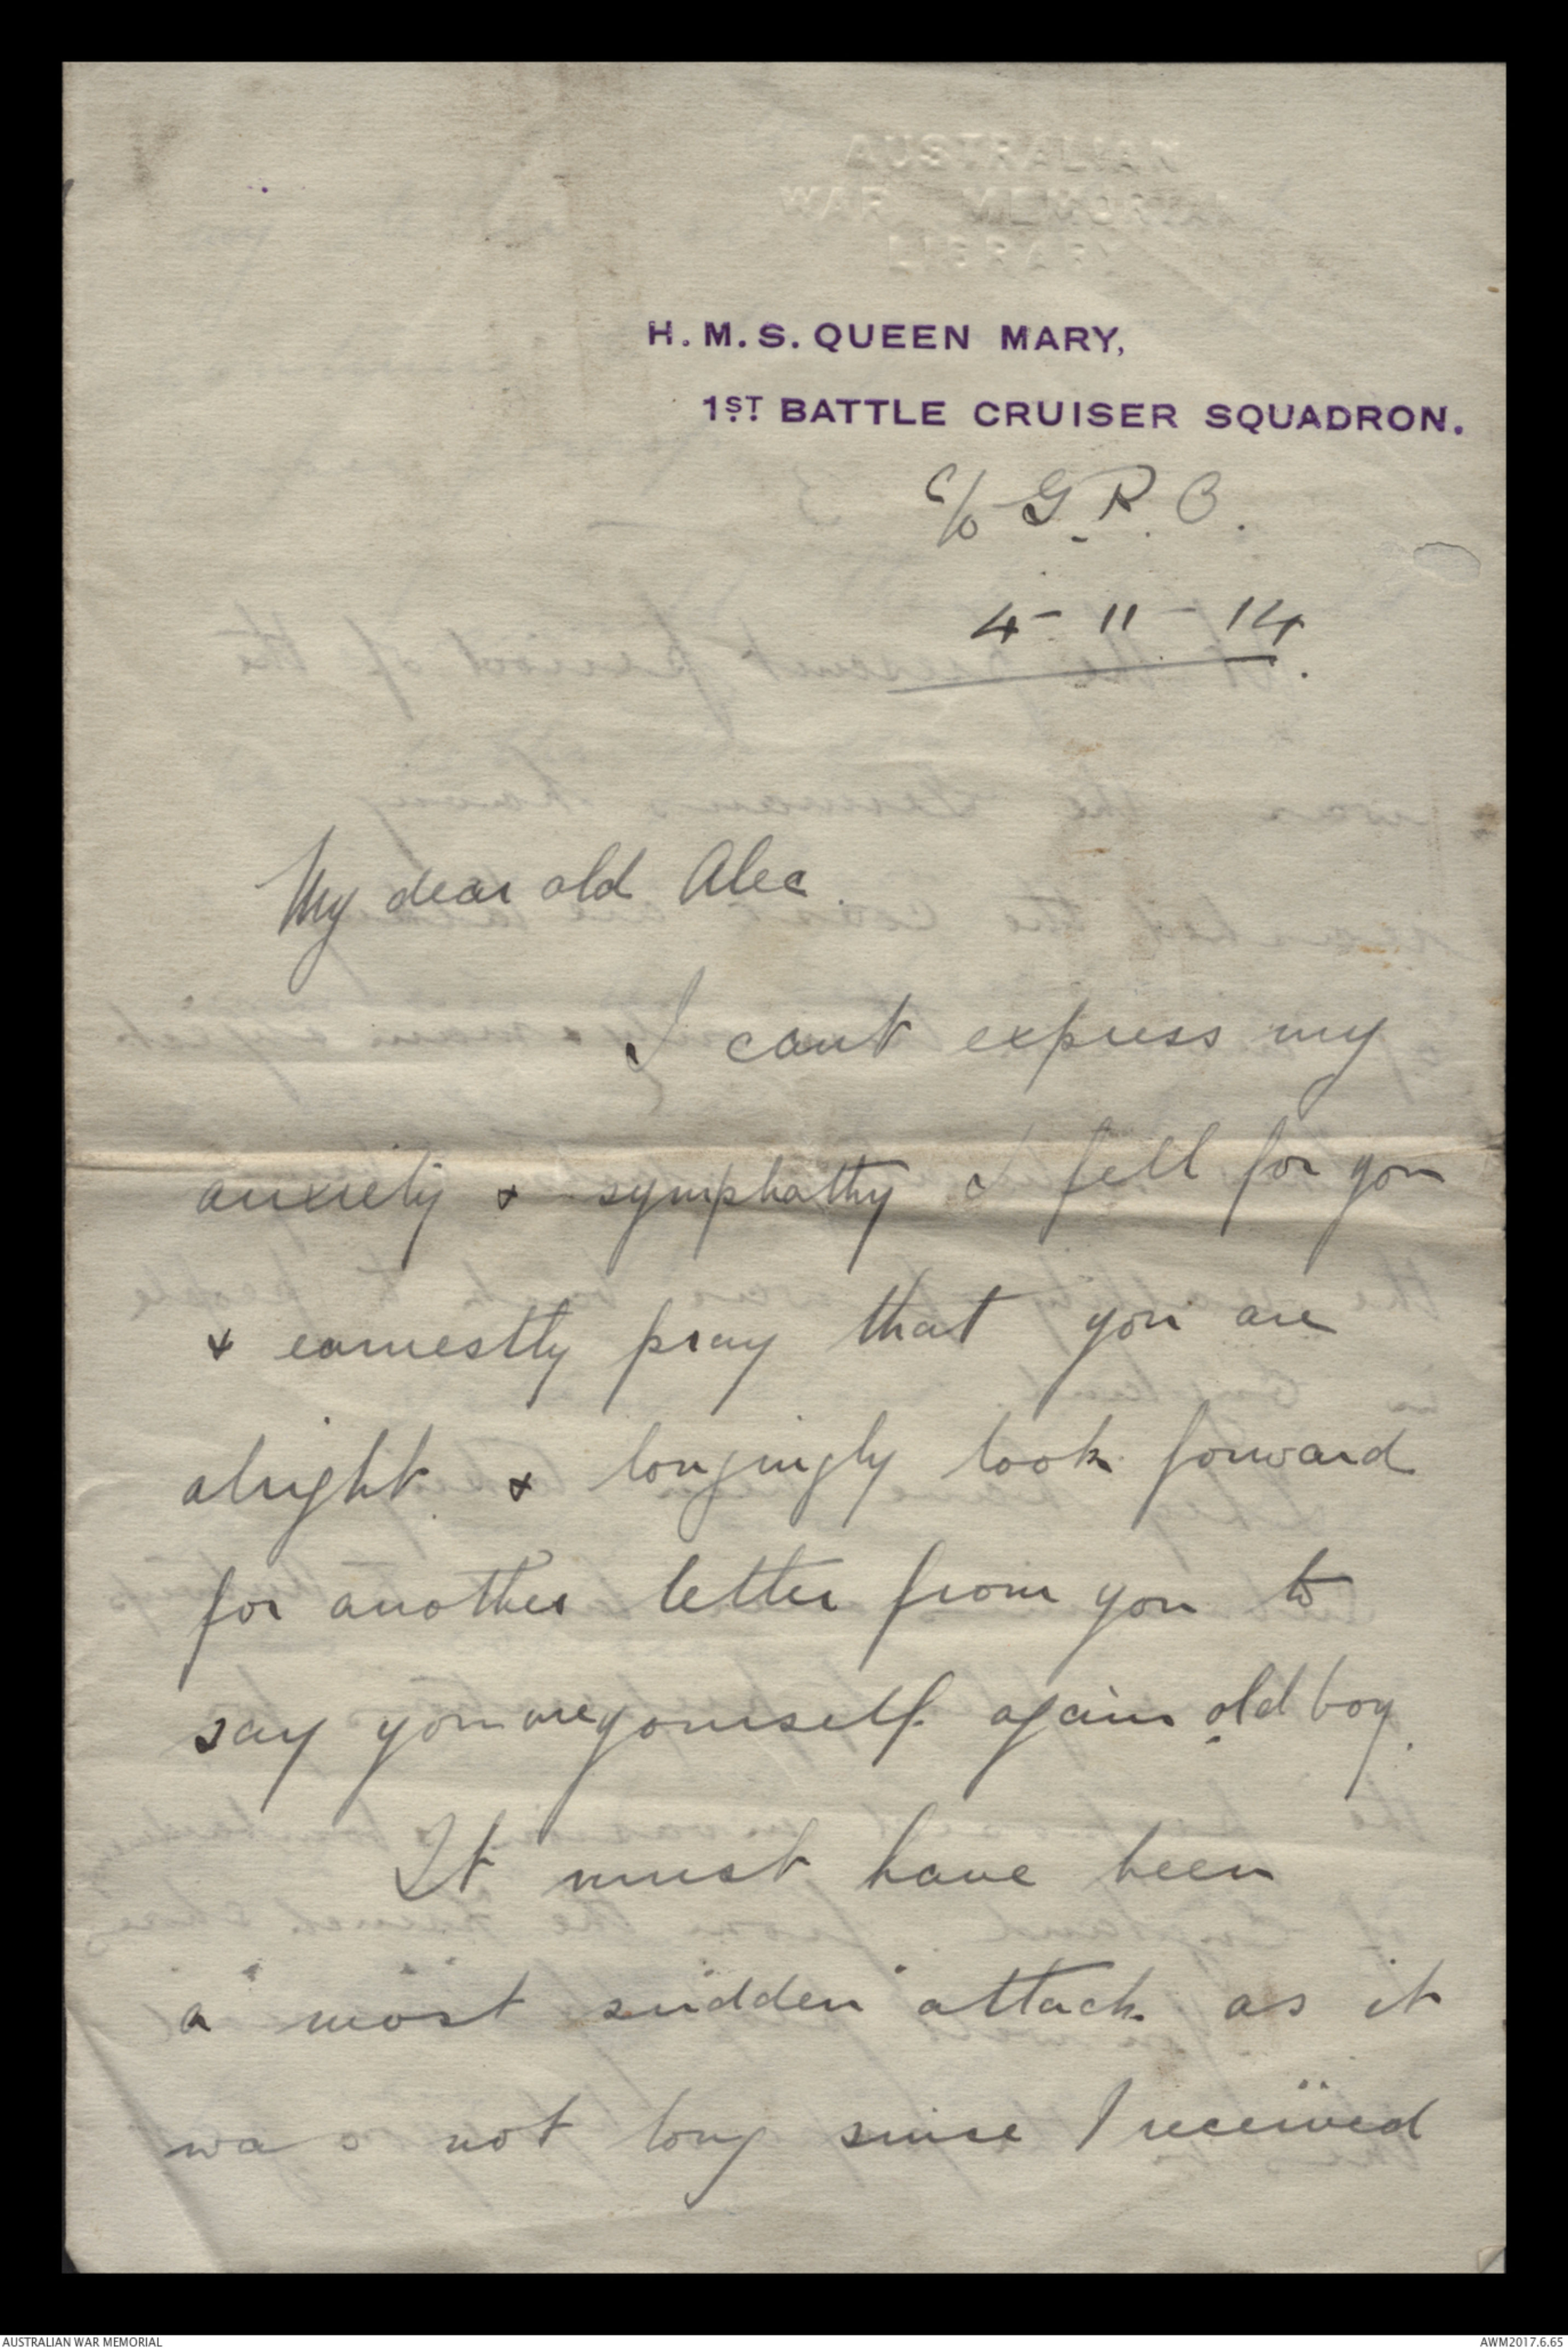 AUSTRALIAN
WAR MEMORIAL
LIBRARY
H.M.S. QUEEN MARY,
1ST BATTLE CRUISER SQUADRON.
c/o G.P.O.
4-11-14.
My dear old Alec.
I cant express my
anxiety & symphathy I fell for you
& earnestly pray that you are
alright. & longingly look forward
for another letter from you to
say you are yourself again old boy.
It must have been
a most sudden attack as it
was not long since I received
AUSTRALIAN WAR MEMORIAL
AWM2017.6.65